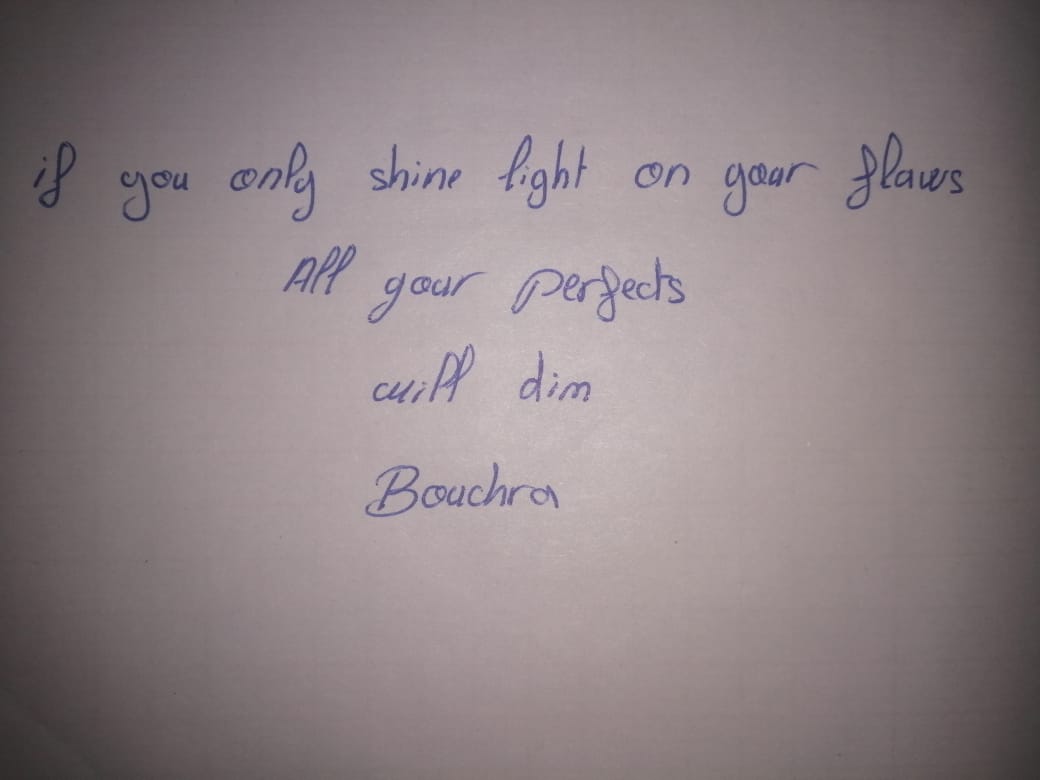 if you only shine light on your flaws
All your perfects
will dim
Bouchra